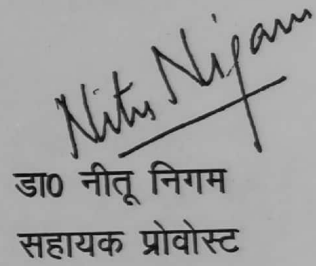 Nitu Nigam
डा0 नीतू निगम
सहायक प्रोवोस्ट